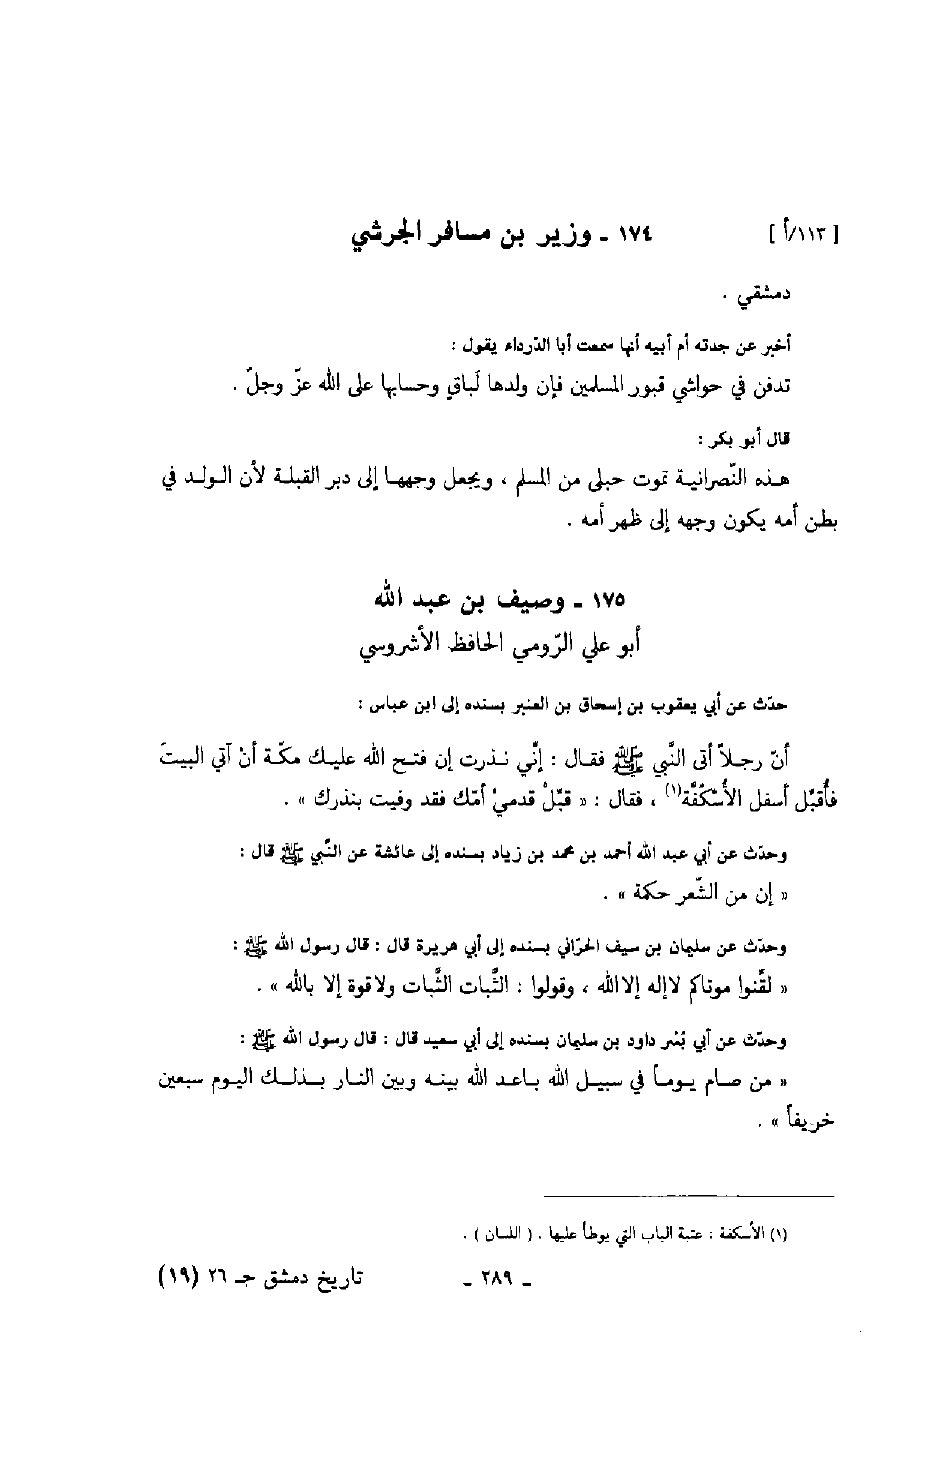 [ ١١٣/أ ] ١٧٤ ـ وزير بن مسافر الجرشي
دمشقي .
أخبر عن جدته أم أبيه أنها سمعت أبا الدَّرداء يقول :
تدفن في حواشي قبور المسلمين فإن ولدها لَباقٍ وحسابها على الله عزّ وجلّ .
قال أبو بكر :
هذه النَّصرانية تموت حبلى من المسلم ، ويجعل وجهها إلى دبر القبلة لأن الولد في
بطن أمه يكون وجهه إلى ظهر أمه .
١٧٥ ـ وصيف بن عبد الله
أبو علي الرّومي الحافظ الأشروسي
حدّث عن أبي يعقوب بن إسحاق بن العنبر بسنده إلى ابن عباس :
أنّ رجلاً أتى النَّبي ﷺ فقال : إنِّي نذرت إن فتح الله عليك مكّة أنْ آتي البيتَ
فأُقبِّل أسفل الأُسْكُفَّة(١) ، فقال : « قبِّلْ قدميْ أمّك فقد وفيت بنذرك » .
وحدّث عن أبي عبد الله أحمد بن محمد بن زياد بسنده إلى عائشة عن النَّبي ﷺ قال :
« إن من الشّعر حكمة » .
وحدّث عن سليمان بن سيف الحرّاني بسنده إلى أبي هريرة قال : قال رسول الله ﷺ :
« لقِّنوا موتاكم لا إله إلا الله ، وقولوا : الثَّبات الثَّبات ولا قوة إلا بالله » .
وحدّث عن أبي بُسْر داود بن سليمان بسنده إلى أبي سعيد قال : قال رسول الله ﷺ :
« من صام يوماً في سبيل الله باعد الله بينه وبين النار بذلك اليوم سبعين
خريفاً » .
(١) الأسكفة : عتبة الباب التي يوطأ عليها . ( اللسان ) .
ـ ٢٨٩ ـ تاريخ دمشق جـ ٢٦ (١٩)